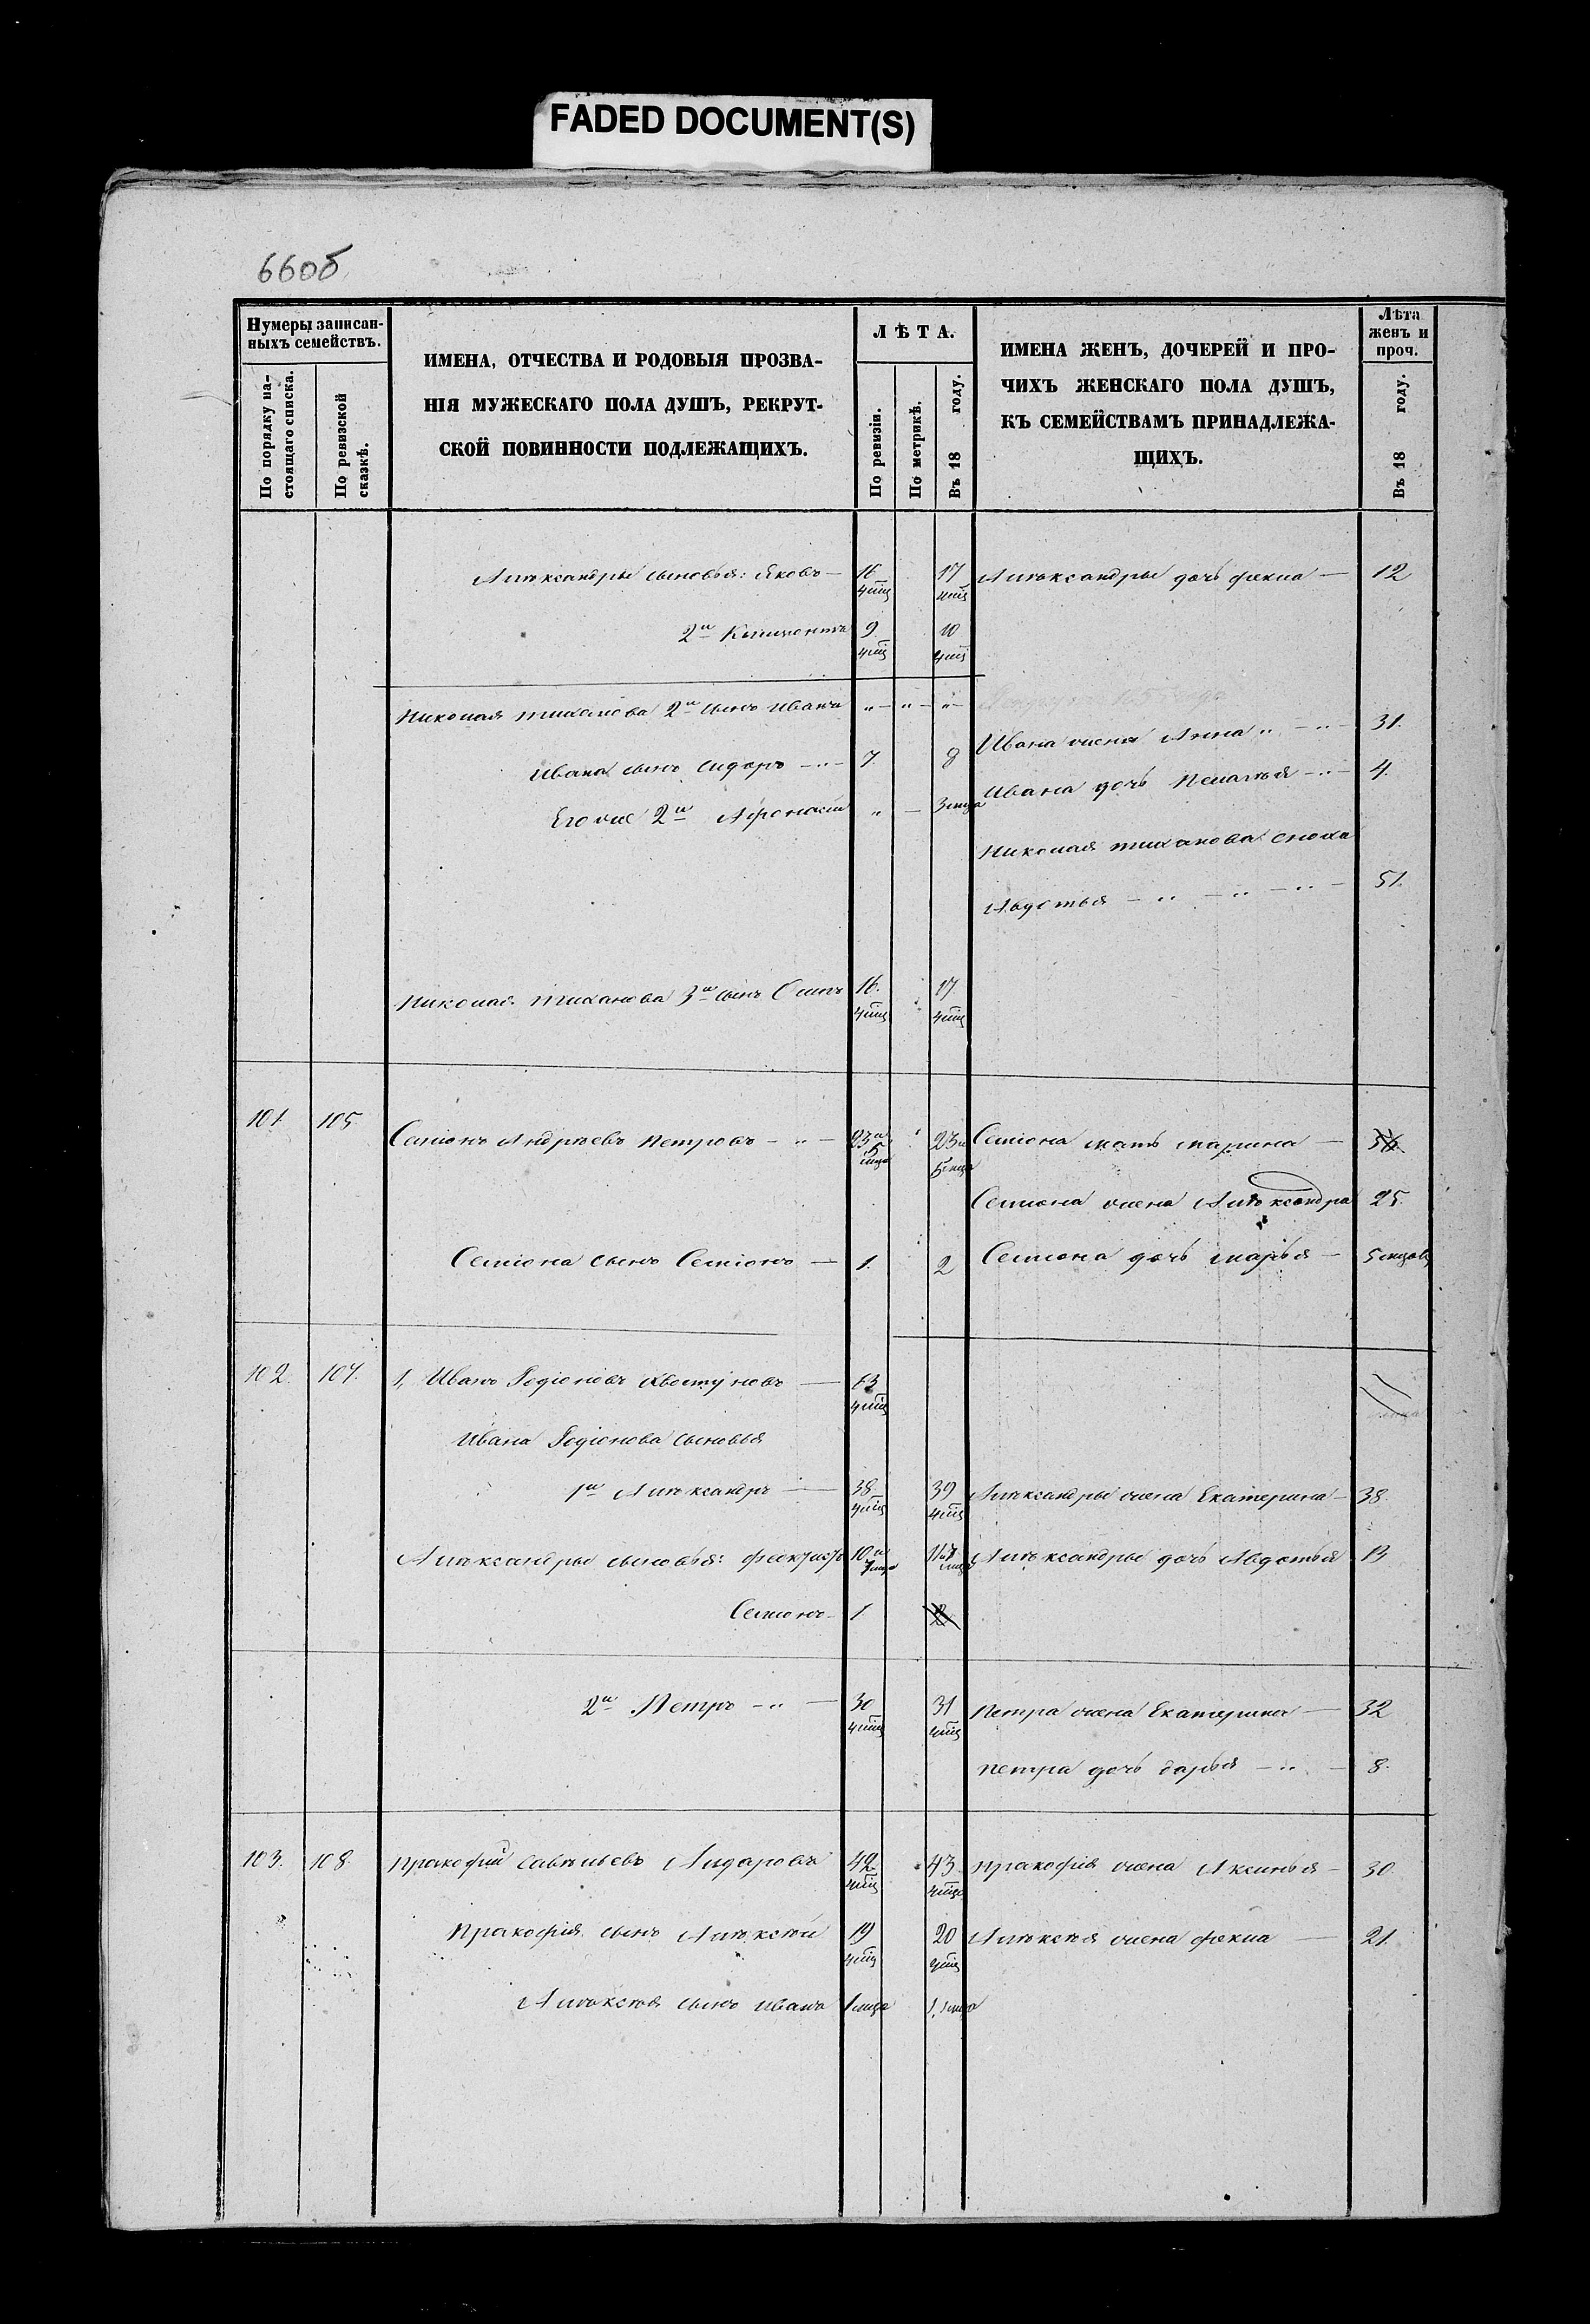 FADED DOCUMENT(S)
66об
Нумеры записан-
ныхъ семействъ.
По порядку на-
стоящаго списка.
По ревизской
сказкѣ.
ИМЕНА, ОТЧЕСТВА И РОДОВЫЯ ПРОЗВА-
НІЯ МУЖЕСКАГО ПОЛА ДУШЪ, РЕКРУТ-
СКОЙ ПОВИННОСТИ ПОДЛЕЖАЩИХЪ.
ЛѢТА.
По ревизіи.
По метрикѣ.
Въ 18 году.
ИМЕНА ЖЕНЪ, ДОЧЕРЕЙ И ПРО-
ЧИХЪ ЖЕНСКАГО ПОЛА ДУШЪ,
КЪ СЕМЕЙСТВАМЪ ПРИНАДЛЕЖА-
ЩИХЪ.
Лѣта
женъ и
проч.
Въ 18 году.
Алѣксандры сыновья: Яковъ — 16 17 Алѣксандры дочь фекла — 12
2й Климонтъ 9 10
Николая тиханова 2й сынъ иванъ " — " — " —
Ивана жена Анна " — " — 31.
Ивана сынъ сидаръ — " — 7. 8
Ивана дочь Пелагѣя — " — 4.
Его же 2й Афонасій " — 3 мца
Николая тиханова сноха
Авдотья — " — " — " — 51.
Николая тиханова 3й сынъ Осипъ 16. 17
101. 105 Семіонъ Андрѣевъ Петровъ — " — 23 и 5 мца 23 и 5 мца Семіона мать марина —
Семіона жена Алѣксандра 25.
Семіона сынъ Семіонъ — 1. 2 Семіона дочь марья — 5 мцовъ
102. 107. 1, Иванъ Родіоновъ Хвостуновъ —
Ивана Родіонова сыновья
1й Алѣксандръ — 38 39 Алѣксандры жена Екатерина — 38.
Алѣксандры сыновья: феоктистъ 10 и Алѣксандры дочь Авдотья 13
Семіонъ — 1 2
2й Петръ — " — 30 31 Петра жена Екатерина — 32
петра дочь дарья — " — 8.
103. 108. Пракофій савѣльевъ Лидаровъ 42. 43. Пракофія жена Аксинья — 30.
Пракофія сынъ Алѣксѣй 19 20 Алѣксѣя жена фекла — 21.
Алѣксѣя сынъ иванъ 1 мца 1, 1 мца